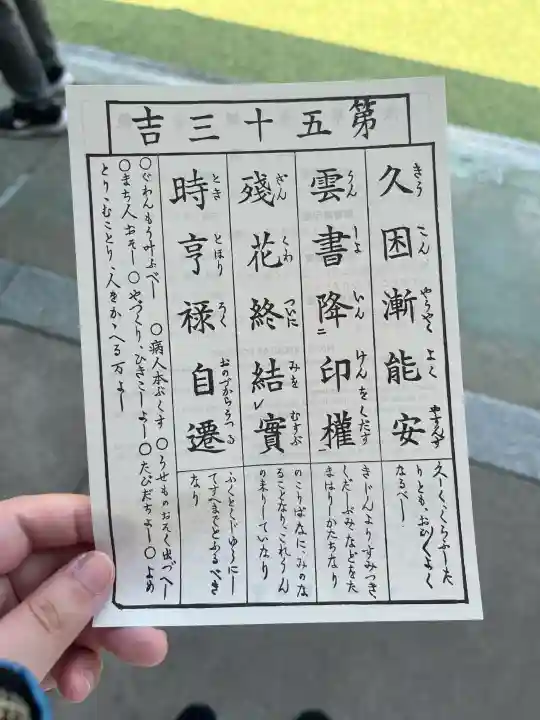 第五十三吉
久困漸能安
きう こん やうやく よく やすんず
久しくくろふしたりとも、おひ〱よくなるべし
雲書降二印權一
うん しよ いん けんをくだす
きじんよりすみつき、くだしぶみなどをたまはりしかたちなり
殘花終結レ實
ざん くわ ついに みを むすぶ
のこりばなに、みのなることなり、これうんの来りしていなり
時亨禄自遷
とき とほり ろく おのづからうつる
ふくとくじゆうにしてすへまでとふるべきなり
〇ぐわんもう叶ふべし 〇病人本ぶくす 〇うせものおそく出づべし
〇まち人おそし〇やづくり、ひきこしよし〇たびだちよし〇よめ
とり、むことり、人をかゝへる万よし